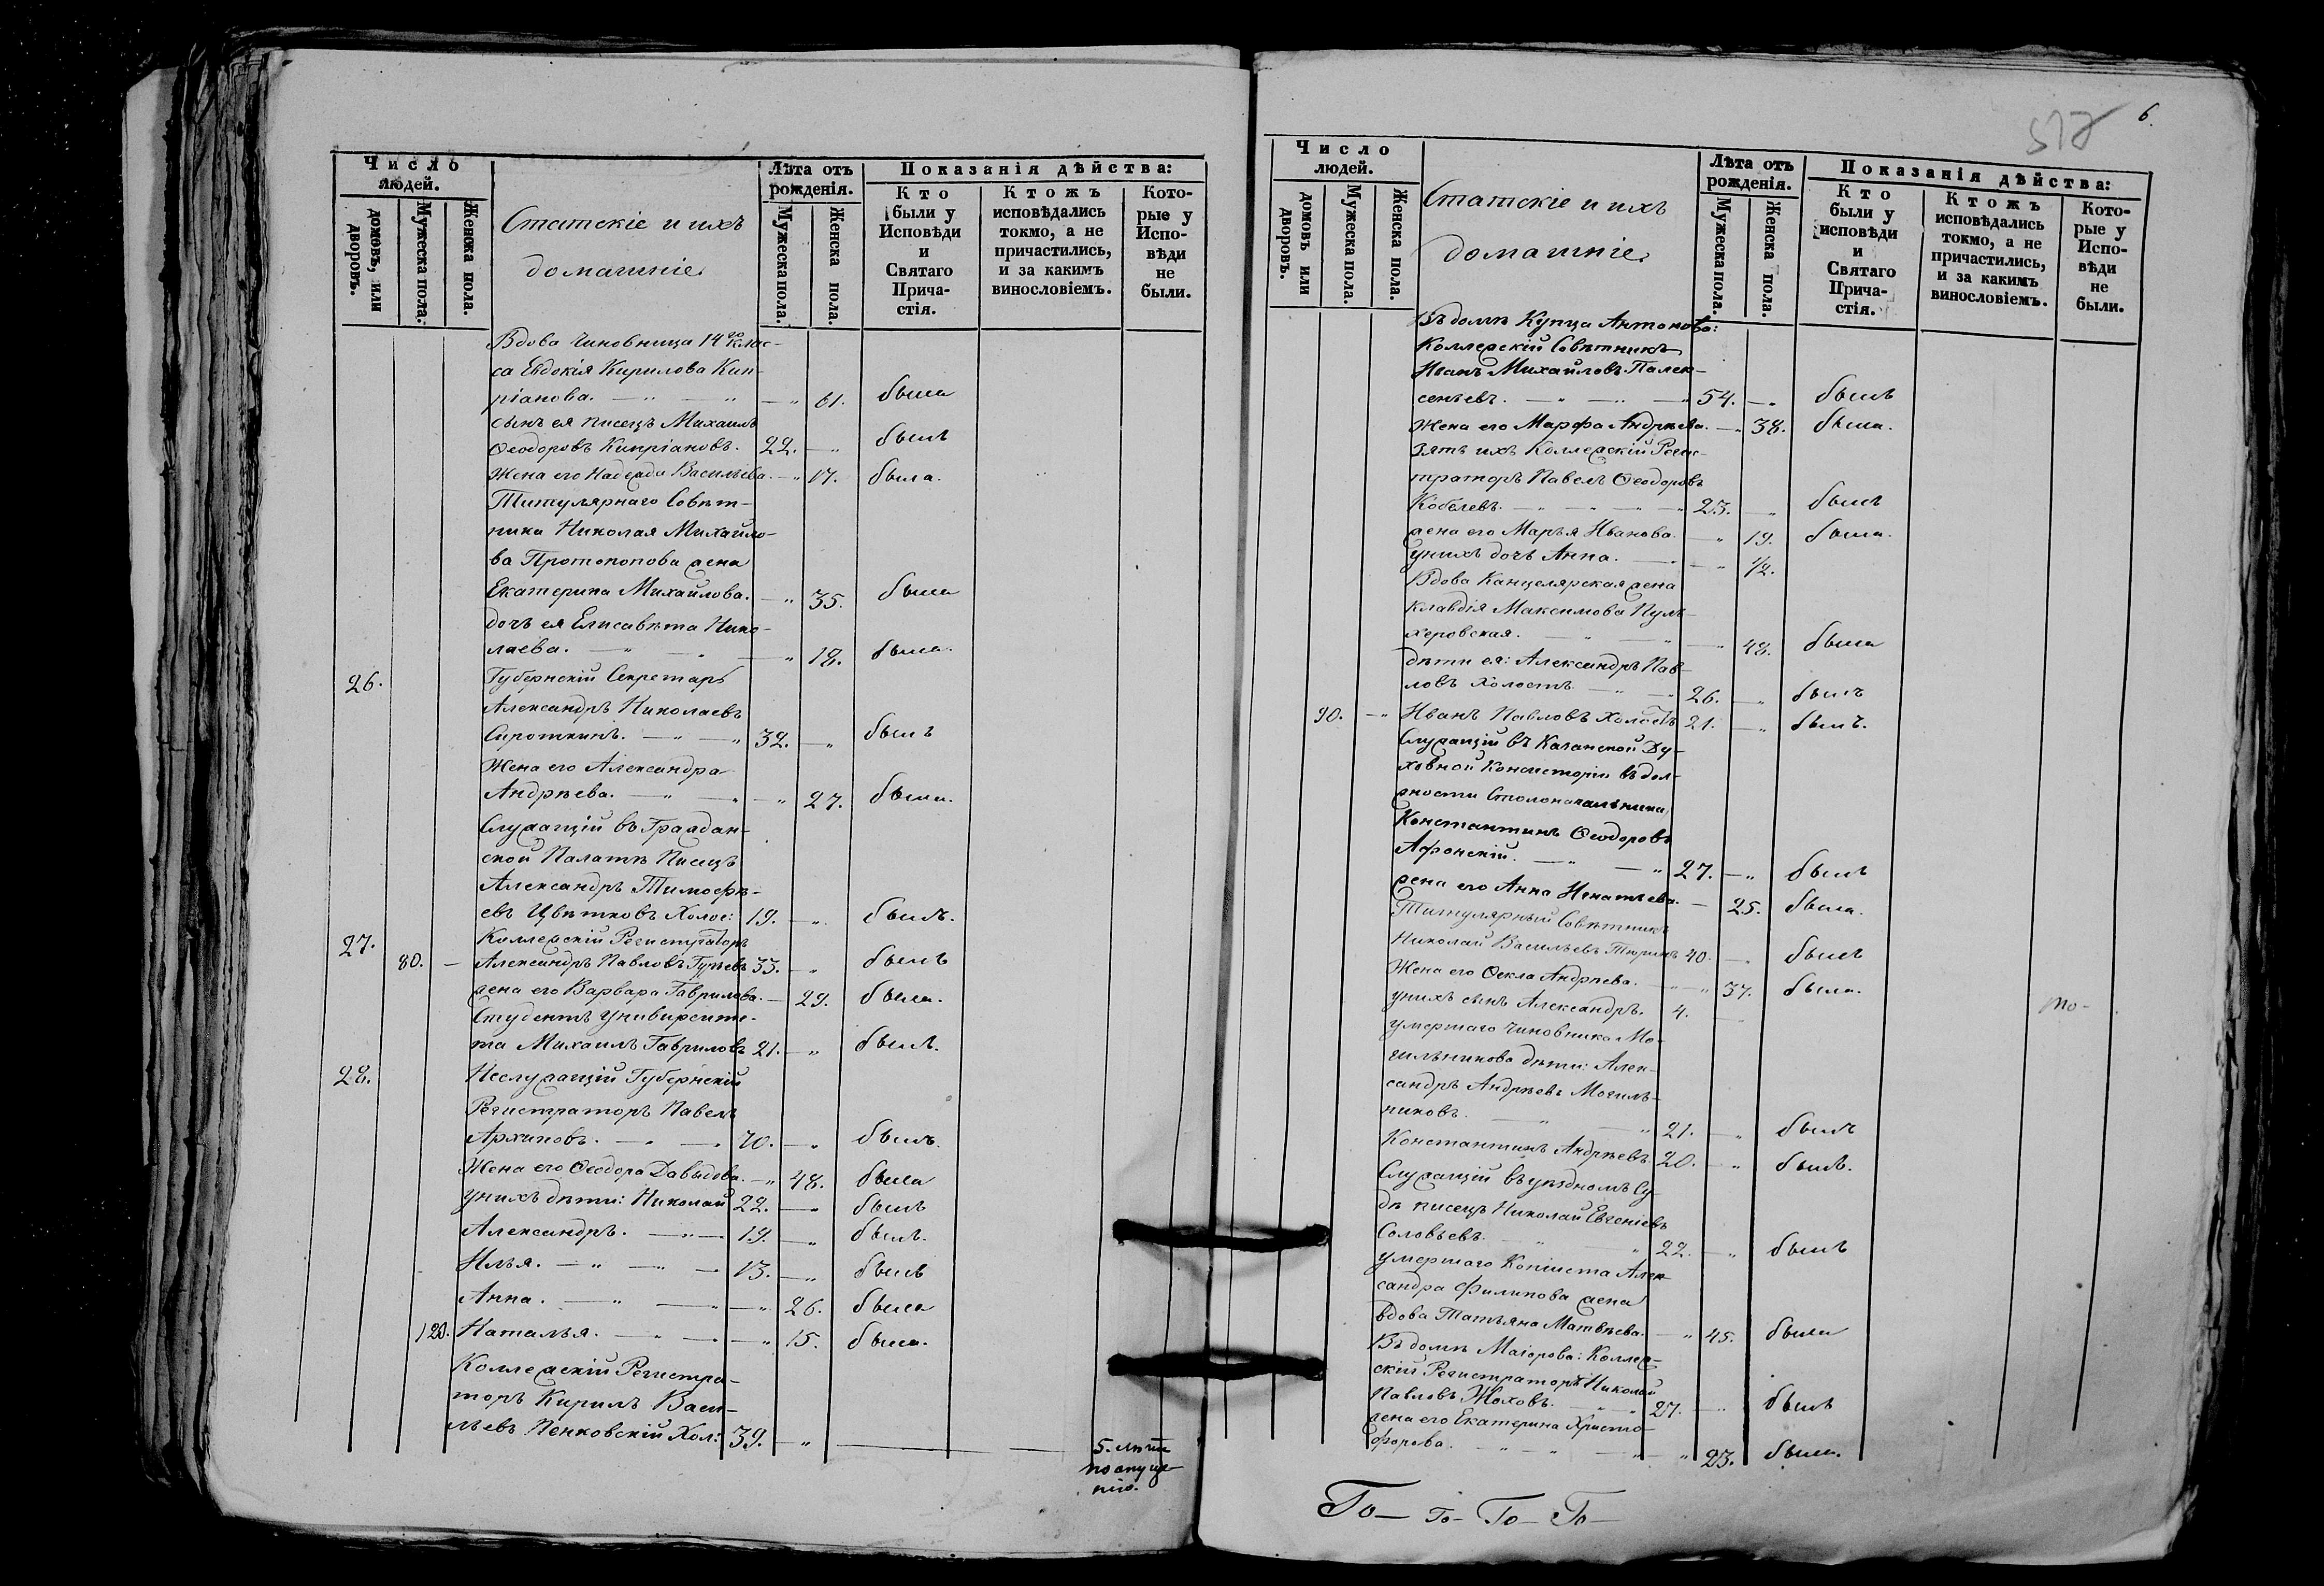 Число людей.
домовъ, или дворовъ.
Мужеска пола.
Женска пола.
Статскіе и ихъ
домашніе
Лѣта отъ рожденія.
Мужеска пола.
Женска пола.
Показанія дѣйства:
Кто были у Исповѣди и Святаго Прича-стія.
Ктожъ исповѣдались токмо, а не причастились, и за какимъ винословіемъ.
Кото-рые у Испо-вѣди не были.
Вдова Чиновница 14го Клас-
са Евдокія Кирилова Кип-
ріанова. — „ — „ — „ 61. была
сынъ ея писецъ Михаилъ
Ѳеодоровъ Кипріановъ. 22. — „ былъ
Жена его Надежда Васильева. — „ 17. была.
Титулярнаго Совѣт-
ника Николая Михайло-
ва Протопопова жена
Екатерина Михайлова. — „ 35. была
дочь ея Елисавета Нико-
лаева. — „ — „ — „ 18. была.
26. Губернскій Секретарь
Александръ Николаевъ
Сироткинъ. — „ — „ 32. — „ былъ
Жена его Александра
Андрѣева. — „ — „ — „ 27. была.
Служащій въ Граждан-
ской Палатѣ Писецъ
Александръ Тимофѣ-
евъ Цвѣтковъ Холос: 19. — „ былъ.
27. Коллежскій Регистраторъ
80. — Александръ Павловъ Гурьевъ 33. — „ былъ
жена его Варвара Гаврилова. — 29. была.
Студентъ Университе-
та Михаилъ Гавриловъ 21. — „ былъ.
28. Неслужащій Губернскій
Регистраторъ Павелъ
Архиповъ. — „ — „ 70. — „ былъ.
Жена его Ѳеодора Давыдова. — „ 48. была
у нихъ дѣти: Николай 22. — „ былъ
Александръ. — „ — 19. — „ былъ.
Илья. — „ — „ — 13. — „ былъ
Анна. — „ — „ — „ 26. была
120. Наталья. — „ — „ — „ 15. была.
Коллежскій Регистра-
торъ Кирилъ Васи-
льевъ Пенковскій Хол: 39. — „
5. лѣтъ
по опуще
нію.
6.
Число людей.
домовъ или дворовъ.
Мужеска пола.
Женска пола.
Статскіе и ихъ
домашніе
Лѣта отъ рожденія.
Мужеска пола.
Женска пола.
Показанія дѣйства:
Кто были у исповѣди и Святаго Прича-стія.
Ктожъ исповѣдались токмо, а не причастились, и за какимъ винословіемъ.
Кото-рые у Испо-вѣди не были.
Въ домѣ Купца Антонова:
Коллежскій Совѣтникъ
Иванъ Михайловъ Палек-
сеньевъ. — „ — „ — „ 54. — „ былъ
Жена его Марфа Андрѣева. — „ 38. была.
Зять ихъ Коллежскій Регис-
траторъ Павелъ Ѳеодоровъ
Кобелевъ. — „ — „ — „ 23. — „ былъ
жена его Марья Иванова. — „ 19. была.
у нихъ дочь Анна. — „ — „ 1/2.
Вдова Канцелярская жена
Клавдія Максимова Пуль-
херовская. — „ — „ — „ 48. была
дѣти ея: Александръ Пав-
ловъ холостъ. — „ — „ 26. — „ былъ
90. — „ Иванъ Павловъ холостъ 21. — „ былъ.
Служащій въ Казанской Ду-
ховной Консисторіи въ дол-
жности Столоначальника
Константинъ Ѳеодоровъ
Афонскій. — „ — „ 27. — „ былъ
жена его Анна Игнатьева. — 25. была.
Титулярный Совѣтникъ
Николай Васильевъ Тюринъ 40. — „ былъ
Жена его Ѳекла Андрѣева. — „ 37. была.
у нихъ сынъ Александръ. 4. —
умершаго Чиновника Мо-
гильникова дѣти: Алек-
сандръ Андрѣевъ Могиль-
никовъ. — „ — „ 21. — „ былъ
Константинъ Андрѣевъ. 20. — „ былъ.
Служащій въ уѣздномъ Су-
дѣ писецъ Николай Евгеніевъ
Соловьевъ. — „ — „ 22. — „ былъ
умершаго Копіиста Алек-
сандра Филипова жена
вдова Татьяна Матвѣева. — „ 45. была
Въ домѣ Маіорова: Коллеж-
скій Регистраторъ Николай
Павловъ Жоховъ. — „ — „ 27. — „ былъ
жена его Екатерина Христо-
форова. — „ — „ — „ 23. была.
То — То — То — То —